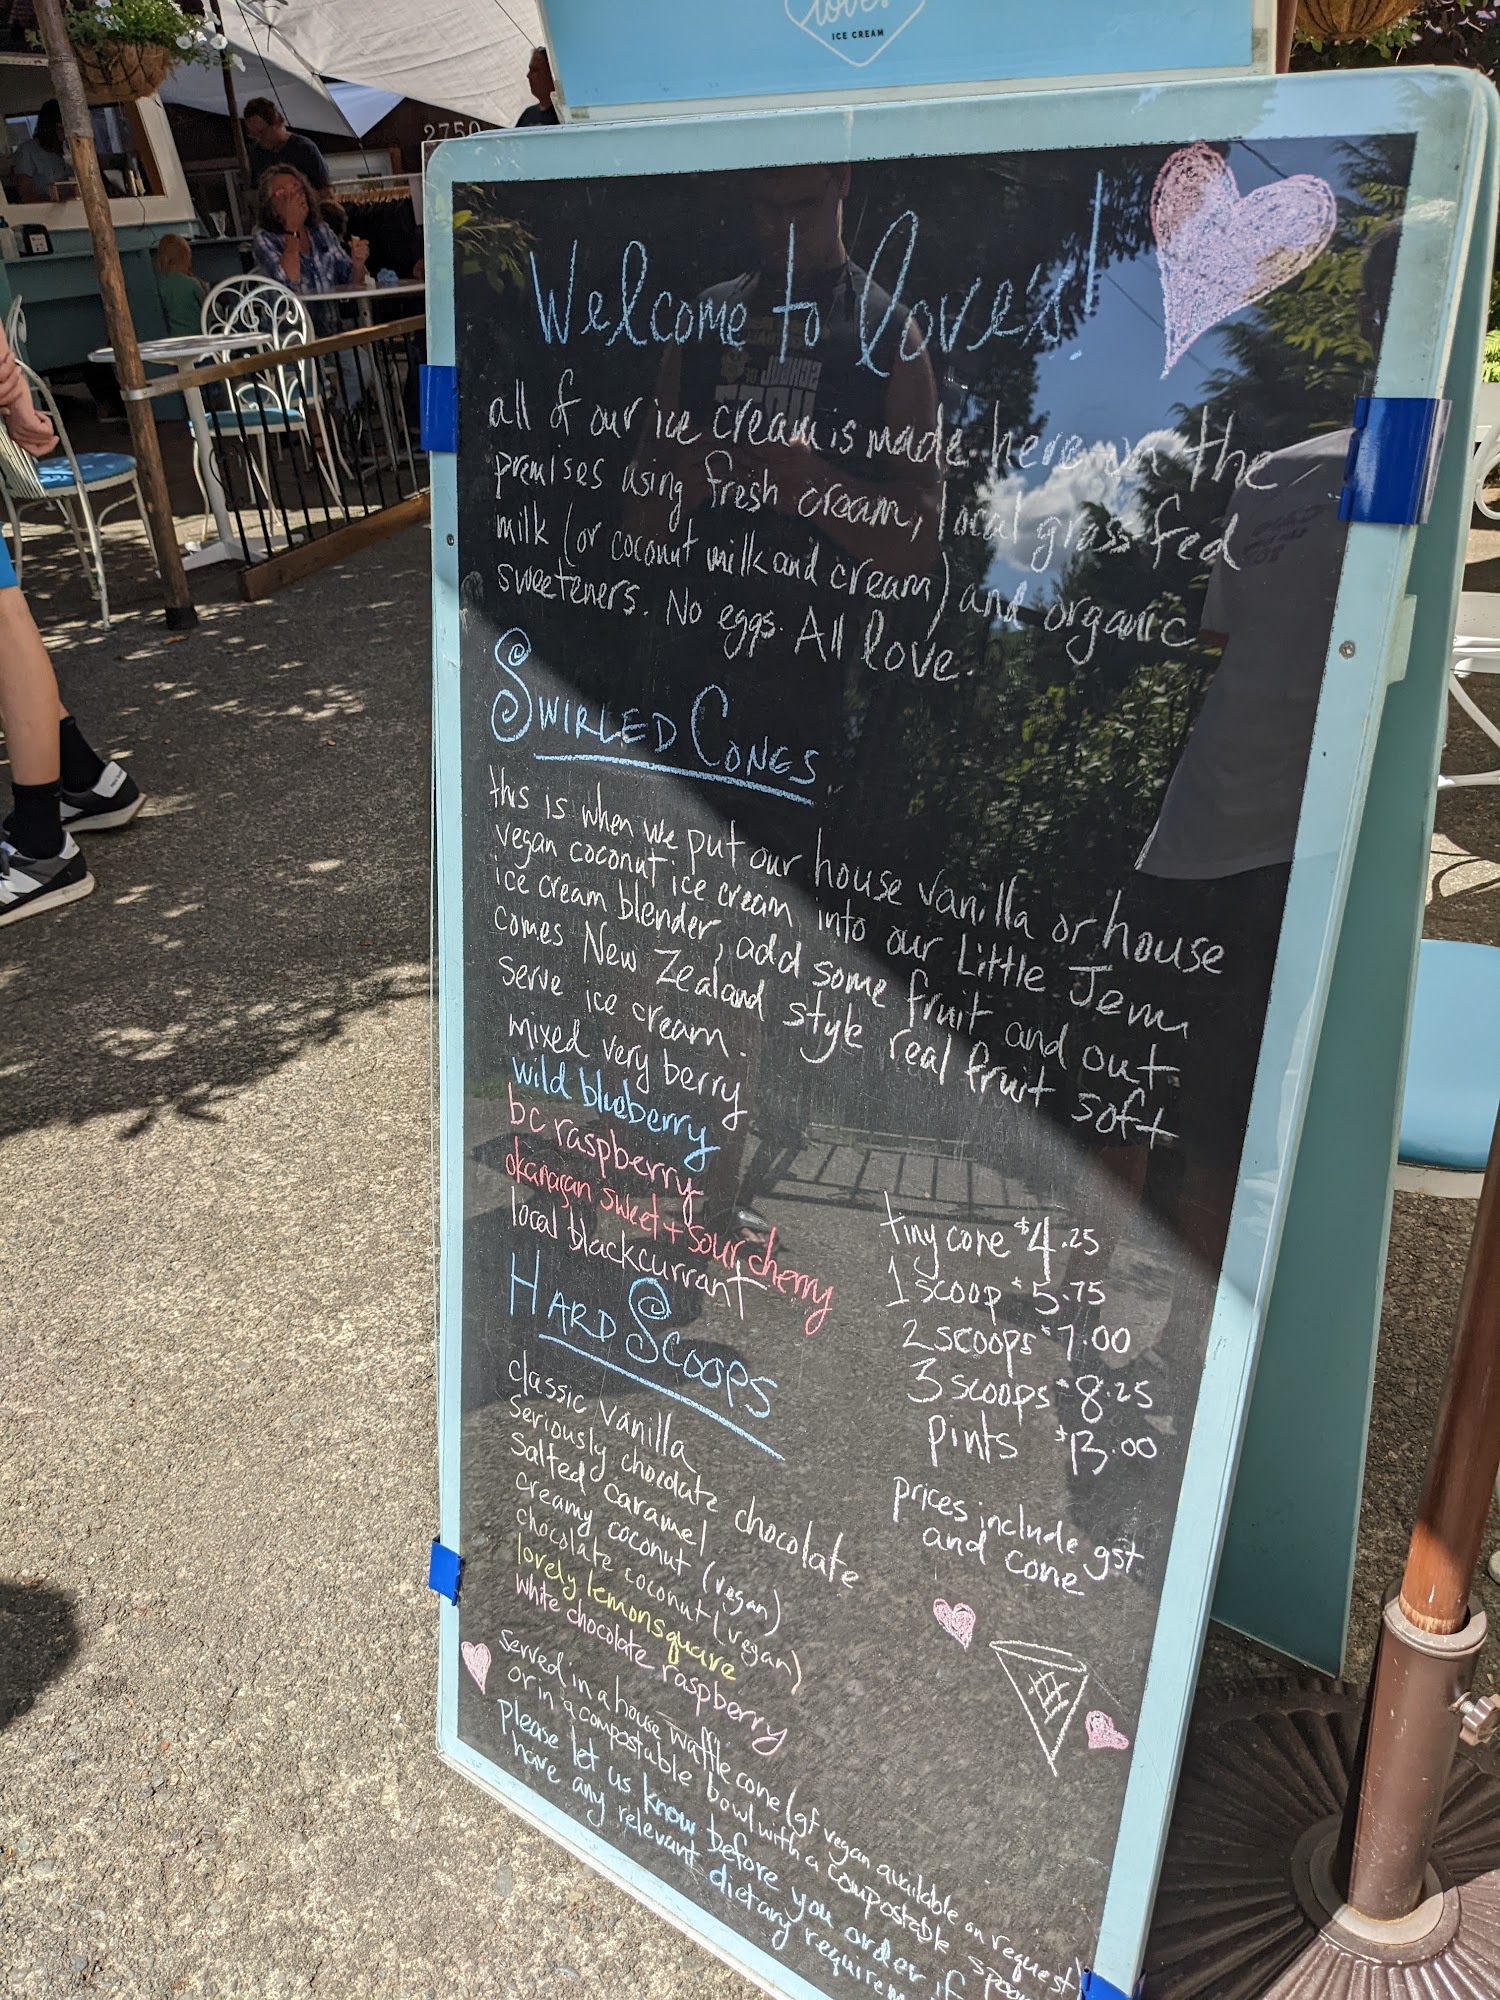 love's
ICE CREAM
2750
Welcome to love's!
all of our ice cream is made here on the
premises using fresh cream, local grass fed
milk (or coconut milk and cream) and organic
sweeteners. No eggs. All love.
SWIRLED CONES
this is when we put our house vanilla or house
vegan coconut ice cream into our Little Jem
ice cream blender, add some fruit and out
comes New Zealand style real fruit soft
serve ice cream.
mixed very berry
wild blueberry
bc raspberry
okanagan sweet + sour cherry
local blackcurrant
HARD SCOOPS
classic vanilla
seriously chocolate chocolate
salted caramel
creamy coconut (vegan)
chocolate coconut (vegan)
lovely lemonsquare
white chocolate raspberry
tiny cone $4.25
1 scoop $5.75
2 scoops $7.00
3 scoops $8.25
pints $13.00
prices include gst
and cone
served in a house waffle cone (gf vegan available on request)
or in a compostable bowl with a compostable spoon
please let us know before you order if
have any relevant dietary requirem